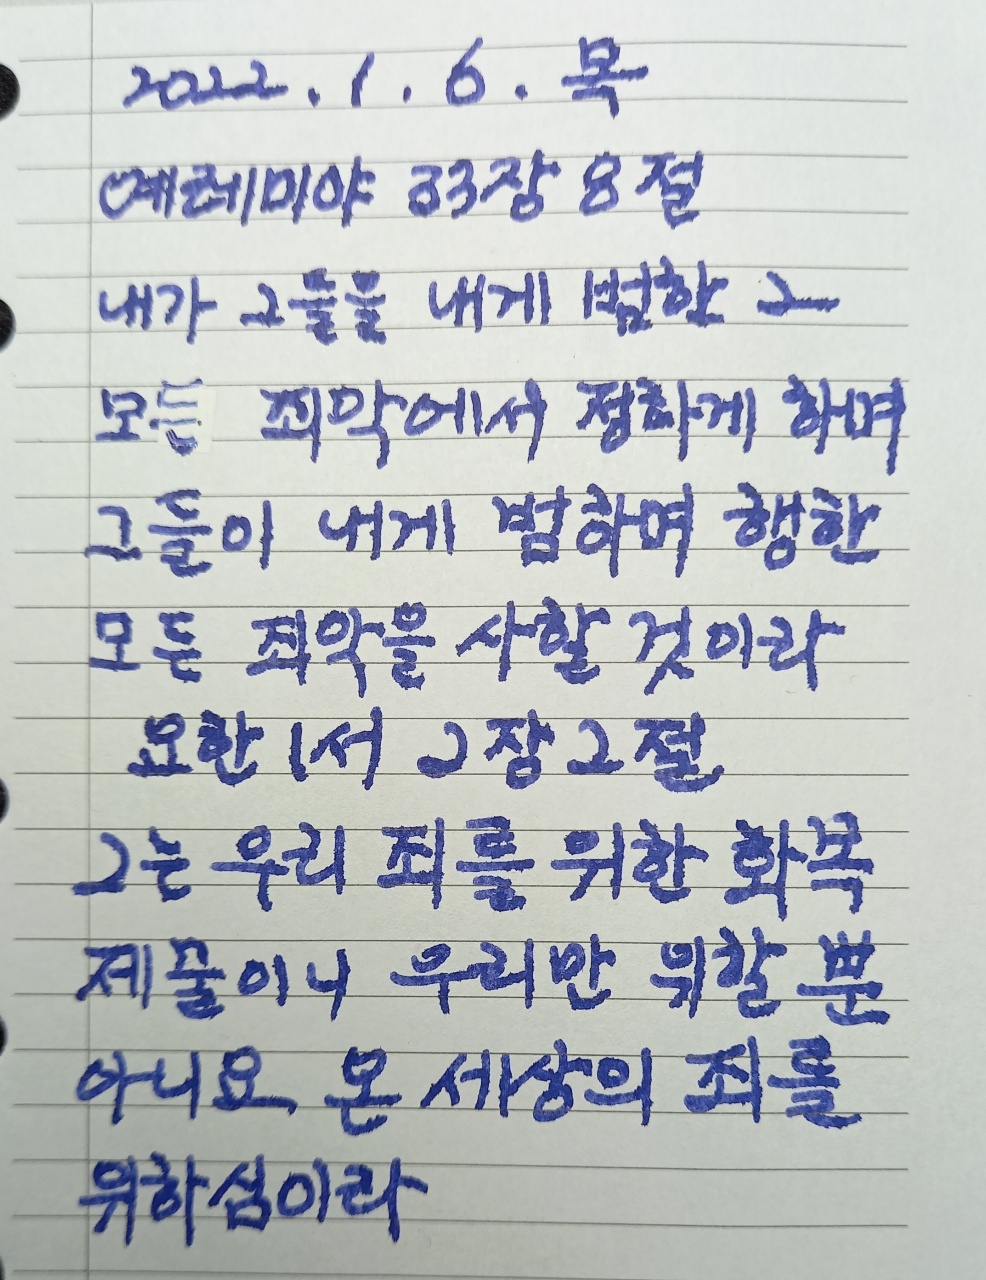 2022. 1. 6. 목
예레미야 33장 8절
내가 그들을 내게 범한 그
모든 죄악에서 정하게 하며
그들이 내게 범하며 행한
모든 죄악을 사할 것이라
요한1서 2장 2절
그는 우리 죄를 위한 화목
제물이니 우리만 위할 뿐
아니요 온 세상의 죄를
위하심이라